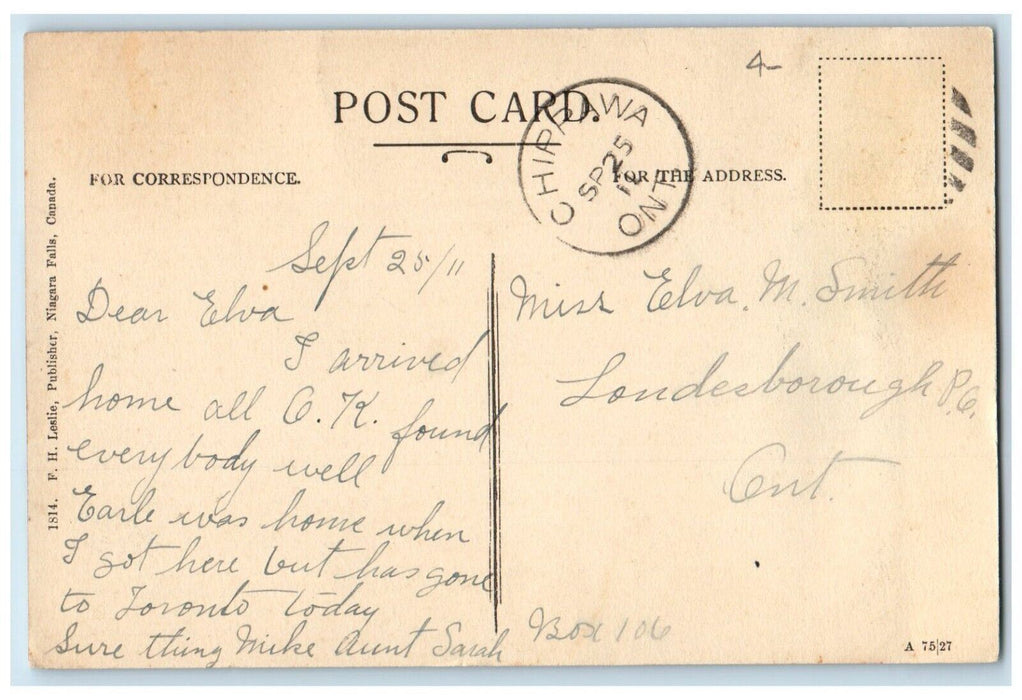 4-
POST CARD.
CHIPPAWA
SP 25
11
ONT
FOR CORRESPONDENCE.
FOR THE ADDRESS.
1814. F. H. Leslie, Publisher, Niagara Falls, Canada.
Sept 25/11
Dear Elva
I arrived
home all O.K. found
everybody well
Earle was home when
I got here but has gone
to Toronto today
Sure thing Mike Aunt Sarah
Miss Elva. M. Smith
Londesborough P.O.
Ont.
Box 106
A 75|27